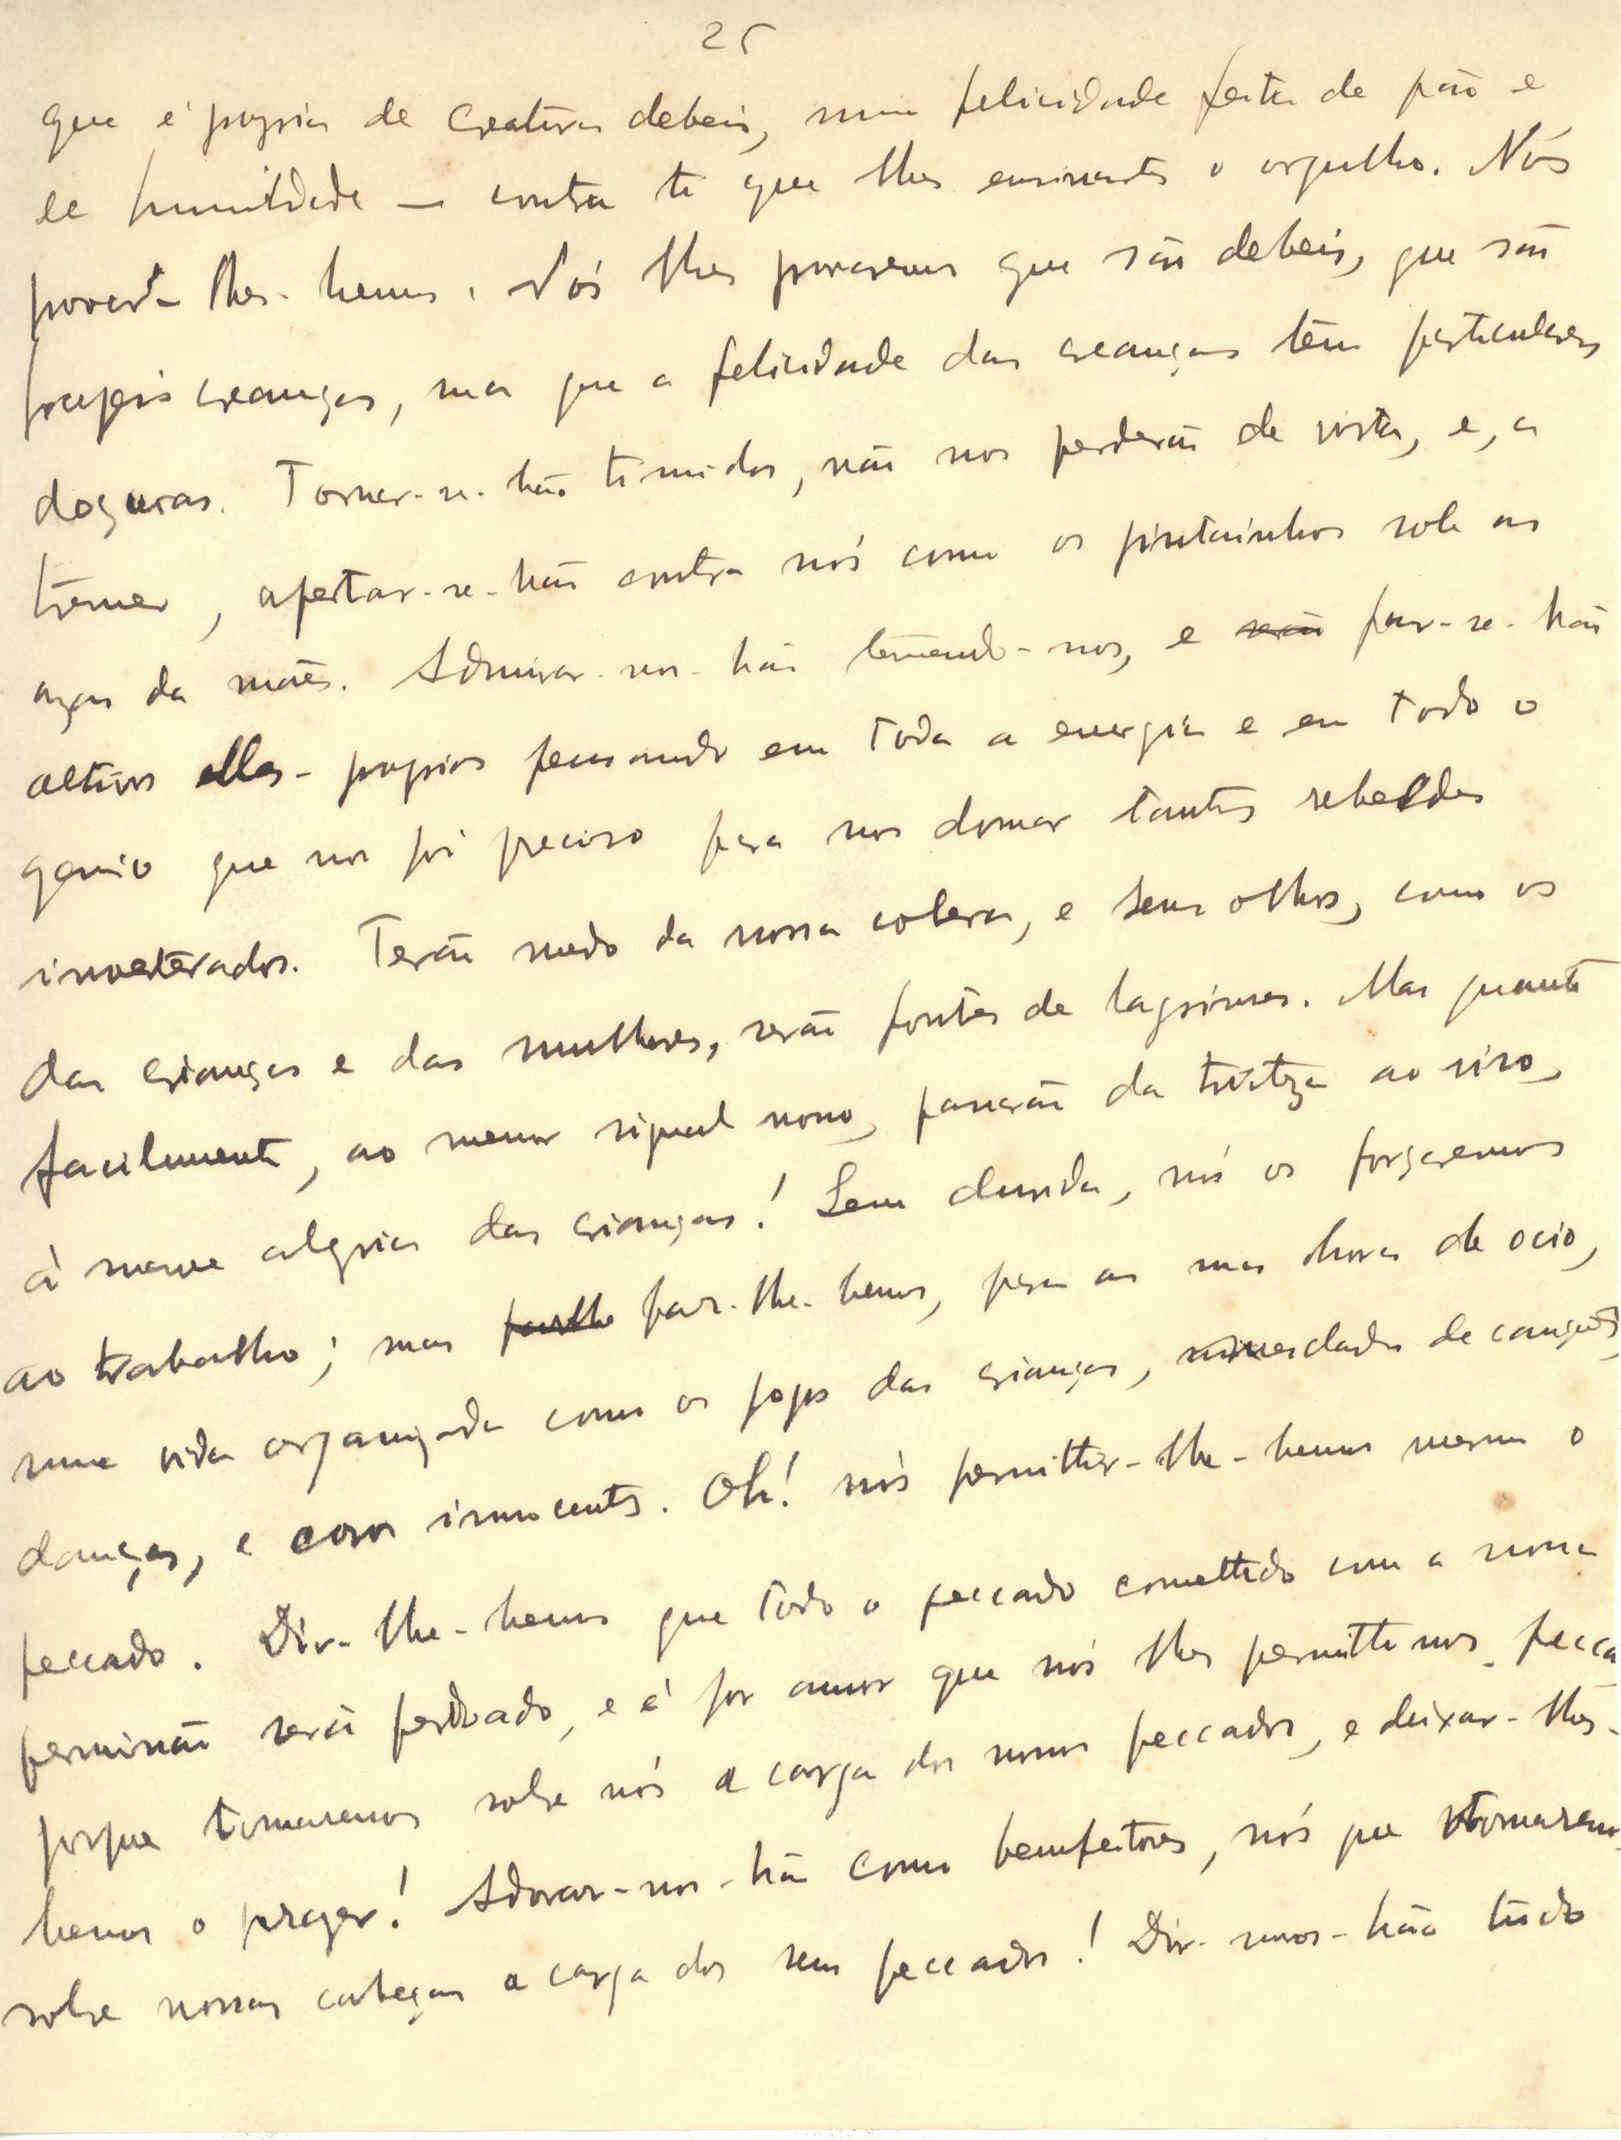 25
que é propria de creaturas debeis, uma felicidade feita de pão e
de humildade — contra ti que lhes ensinaste o orgulho. Nós
provar-lhes-hemos. Nós lhes provaremos que são debeis, que são
frageis creanças, mas que a felicidade das creanças têm particulares
doçuras. Tornar-se-hão timidos, não nos perderão de vista, e, a
tremer, apertar-se-hão contra nós como os pintainhos sob as
azas da mãe. Admirar-nos-hão temendo-nos, e far-se-hão
altivos elles-proprios pensando em toda a energia e em todo o
genio que nos foi preciso para nos domar tantos rebeldes
inveterados. Terão medo da nossa colera, e seus olhos, como os
das crianças e das mulheres, serão fontes de lagrimas. Mas quanto
facilmente, ao menor signal nosso, passarão da tristeza ao riso,
à suave alegria das crianças! Sem duvida, nós os forçaremos
ao trabalho; mas far-lhe-hemos, para as suas horas de ocio,
uma vida organizada como os jogos das crianças, de canções,
danças, e coros innocentes. Oh! nós permittir-lhe-hemos mesmo o
peccado. Dir-lhe-hemos que todo o peccado comettido com a nossa
permissão será perdoado, e é por amor que nós lhes permittimos pecca
porque tomaremos sobre nós a carga dos nossos peccados, e deixar-lhes-
hemos o prazer! Adorar-nos-hão como bemfeitores, nós que tomaremos
sobre nossas cabeças a carga dos seus peccados! Dir-nos-hão tudo